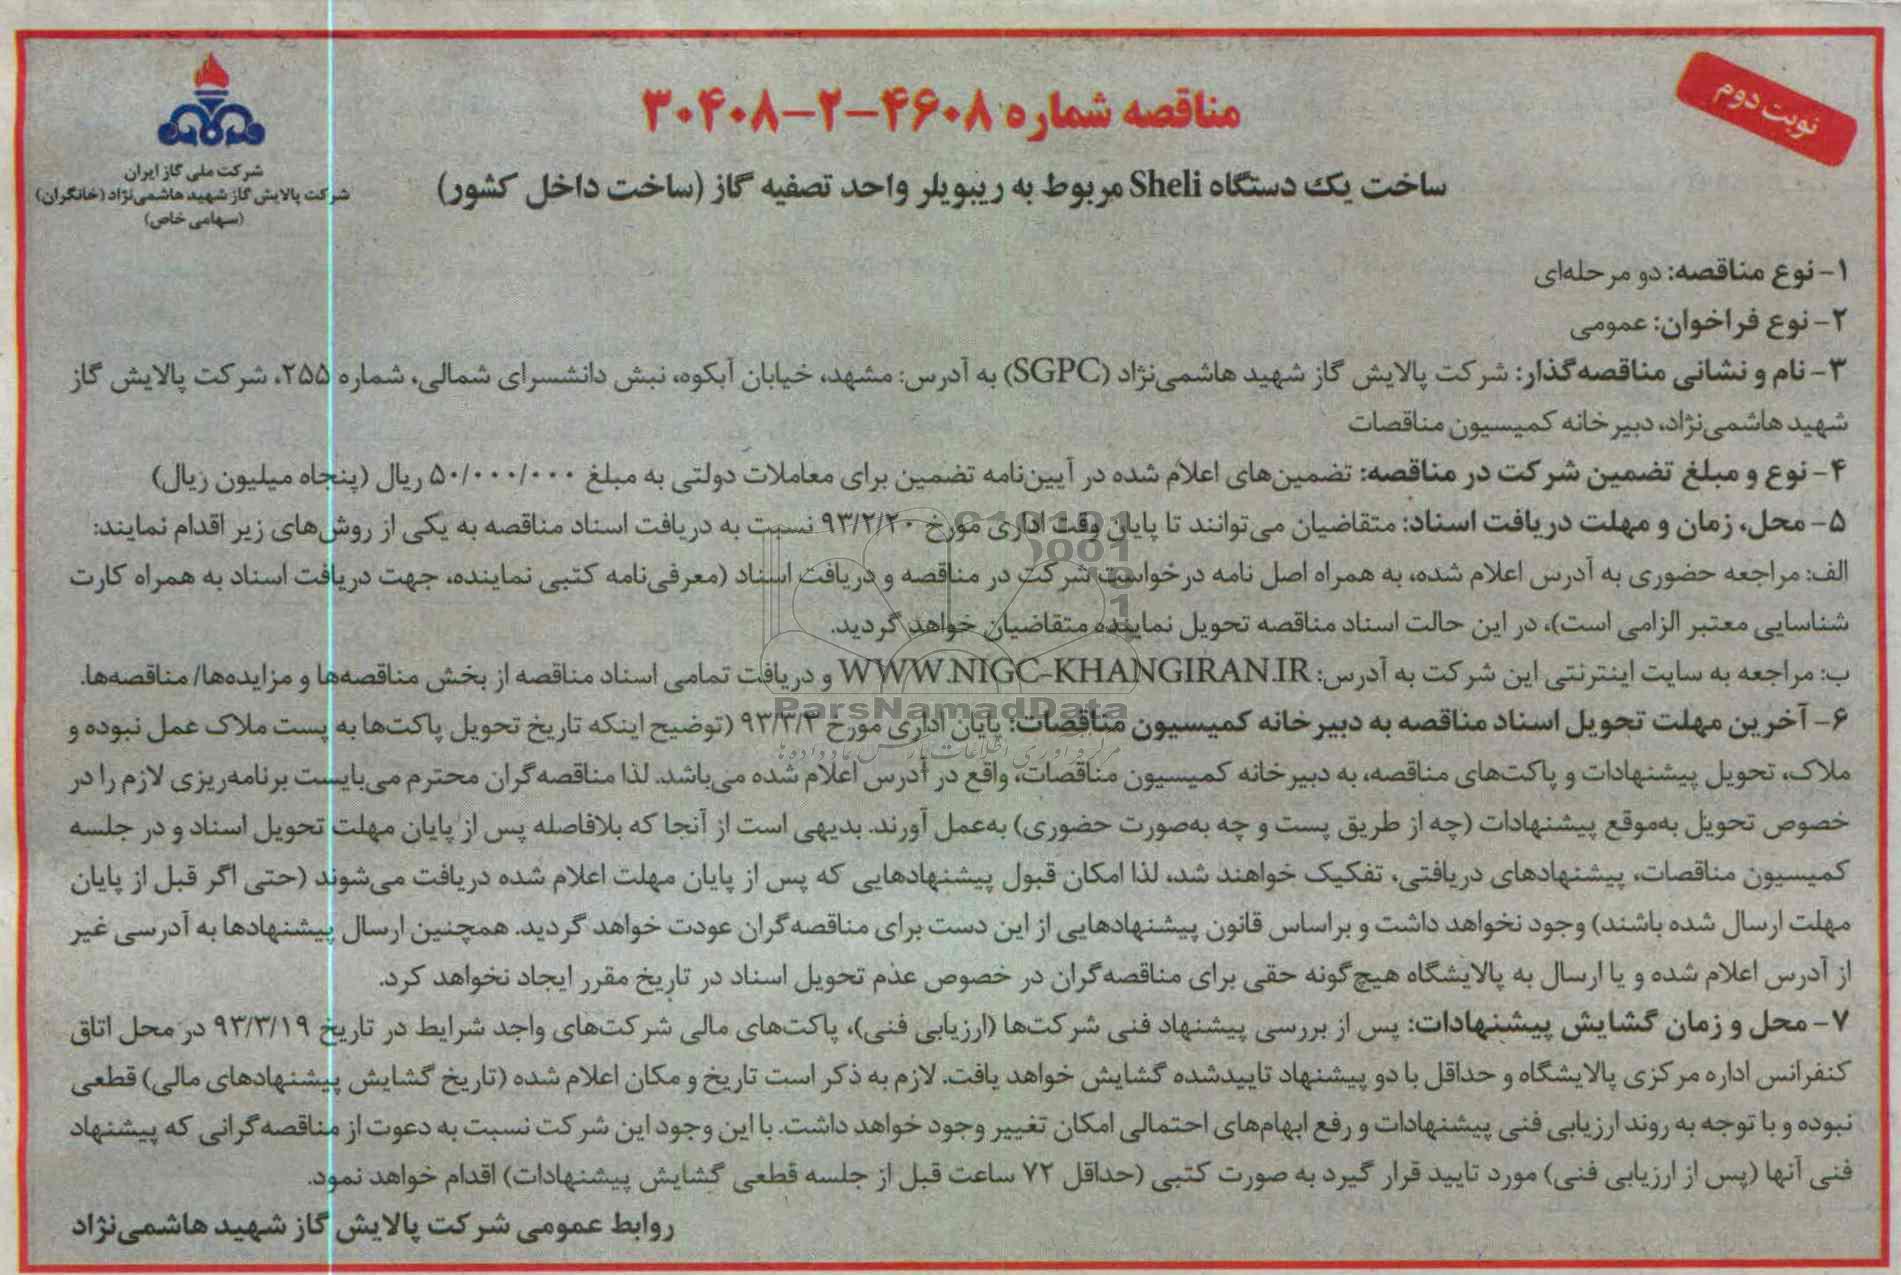 نوبت دوم
مناقصه شماره ۴۶۰۸-۲-۳۰۴۰۸
ساخت یک دستگاه Sheli مربوط به ریبویلر واحد تصفیه گاز (ساخت داخل کشور)
شرکت ملی گاز ایران
شرکت پالایش گاز شهید هاشمی‌نژاد (خانگیران)
(سهامی خاص)
۱- نوع مناقصه: دو مرحله‌ای
۲- نوع فراخوان: عمومی
۳- نام و نشانی مناقصه‌گذار: شرکت پالایش گاز شهید هاشمی‌نژاد (SGPC) به آدرس: مشهد، خیابان آبکوه، نبش دانشسرای شمالی، شماره ۲۵۵، شرکت پالایش گاز
شهید هاشمی‌نژاد، دبیرخانه کمیسیون مناقصات
۴- نوع و مبلغ تضمین شرکت در مناقصه: تضمین‌های اعلام شده در آیین‌نامه تضمین برای معاملات دولتی به مبلغ ۵۰/۰۰۰/۰۰۰ ریال (پنجاه میلیون ریال)
۵- محل، زمان و مهلت دریافت اسناد: متقاضیان می‌توانند تا پایان وقت اداری مورخ ۹۳/۲/۲۰ نسبت به دریافت اسناد مناقصه به یکی از روش‌های زیر اقدام نمایند:
الف: مراجعه حضوری به آدرس اعلام شده، به همراه اصل نامه درخواست شرکت در مناقصه و دریافت اسناد (معرفی‌نامه کتبی نماینده، جهت دریافت اسناد به همراه کارت
شناسایی معتبر الزامی است)، در این حالت اسناد مناقصه تحویل نماینده متقاضیان خواهد گردید.
ب: مراجعه به سایت اینترنتی این شرکت به آدرس: WWW.NIGC-KHANGIRAN.IR و دریافت تمامی اسناد مناقصه از بخش مناقصه‌ها و مزایده‌ها/ مناقصه‌ها.
ParsNamadData
۶- آخرین مهلت تحویل اسناد مناقصه به دبیرخانه کمیسیون مناقصات: پایان اداری مورخ ۹۳/۳/۳ (توضیح اینکه تاریخ تحویل پاکت‌ها به پست ملاک عمل نبوده و
ملاک، تحویل پیشنهادات و پاکت‌های مناقصه، به دبیرخانه کمیسیون مناقصات، واقع در آدرس اعلام شده می‌باشد. لذا مناقصه‌گران محترم می‌بایست برنامه‌ریزی لازم را در
خصوص تحویل به‌موقع پیشنهادات (چه از طریق پست و چه به‌صورت حضوری) به‌عمل آورند. بدیهی است از آنجا که بلافاصله پس از پایان مهلت تحویل اسناد و در جلسه
کمیسیون مناقصات، پیشنهادهای دریافتی، تفکیک خواهند شد، لذا امکان قبول پیشنهادهایی که پس از پایان مهلت اعلام شده دریافت می‌شوند (حتی اگر قبل از پایان
مهلت ارسال شده باشند) وجود نخواهد داشت و براساس قانون پیشنهادهایی از این دست برای مناقصه‌گران عودت خواهد گردید. همچنین ارسال پیشنهادها به آدرسی غیر
از آدرس اعلام شده و یا ارسال به پالایشگاه هیچ‌گونه حقی برای مناقصه‌گران در خصوص عدم تحویل اسناد در تاریخ مقرر ایجاد نخواهد کرد.
۷- محل و زمان گشایش پیشنهادات: پس از بررسی پیشنهاد فنی شرکت‌ها (ارزیابی فنی)، پاکت‌های مالی شرکت‌های واجد شرایط در تاریخ ۹۳/۳/۱۹ در محل اتاق
کنفرانس اداره مرکزی پالایشگاه و حداقل با دو پیشنهاد تاییدشده گشایش خواهد یافت. لازم به ذکر است تاریخ و مکان اعلام شده (تاریخ گشایش پیشنهادهای مالی) قطعی
نبوده و با توجه به روند ارزیابی فنی پیشنهادات و رفع ابهام‌های احتمالی امکان تغییر وجود خواهد داشت. با این وجود این شرکت نسبت به دعوت از مناقصه‌گرانی که پیشنهاد
فنی آنها (پس از ارزیابی فنی) مورد تایید قرار گیرد به صورت کتبی (حداقل ۷۲ ساعت قبل از جلسه قطعی گشایش پیشنهادات) اقدام خواهد نمود.
روابط عمومی شرکت پالایش گاز شهید هاشمی‌نژاد